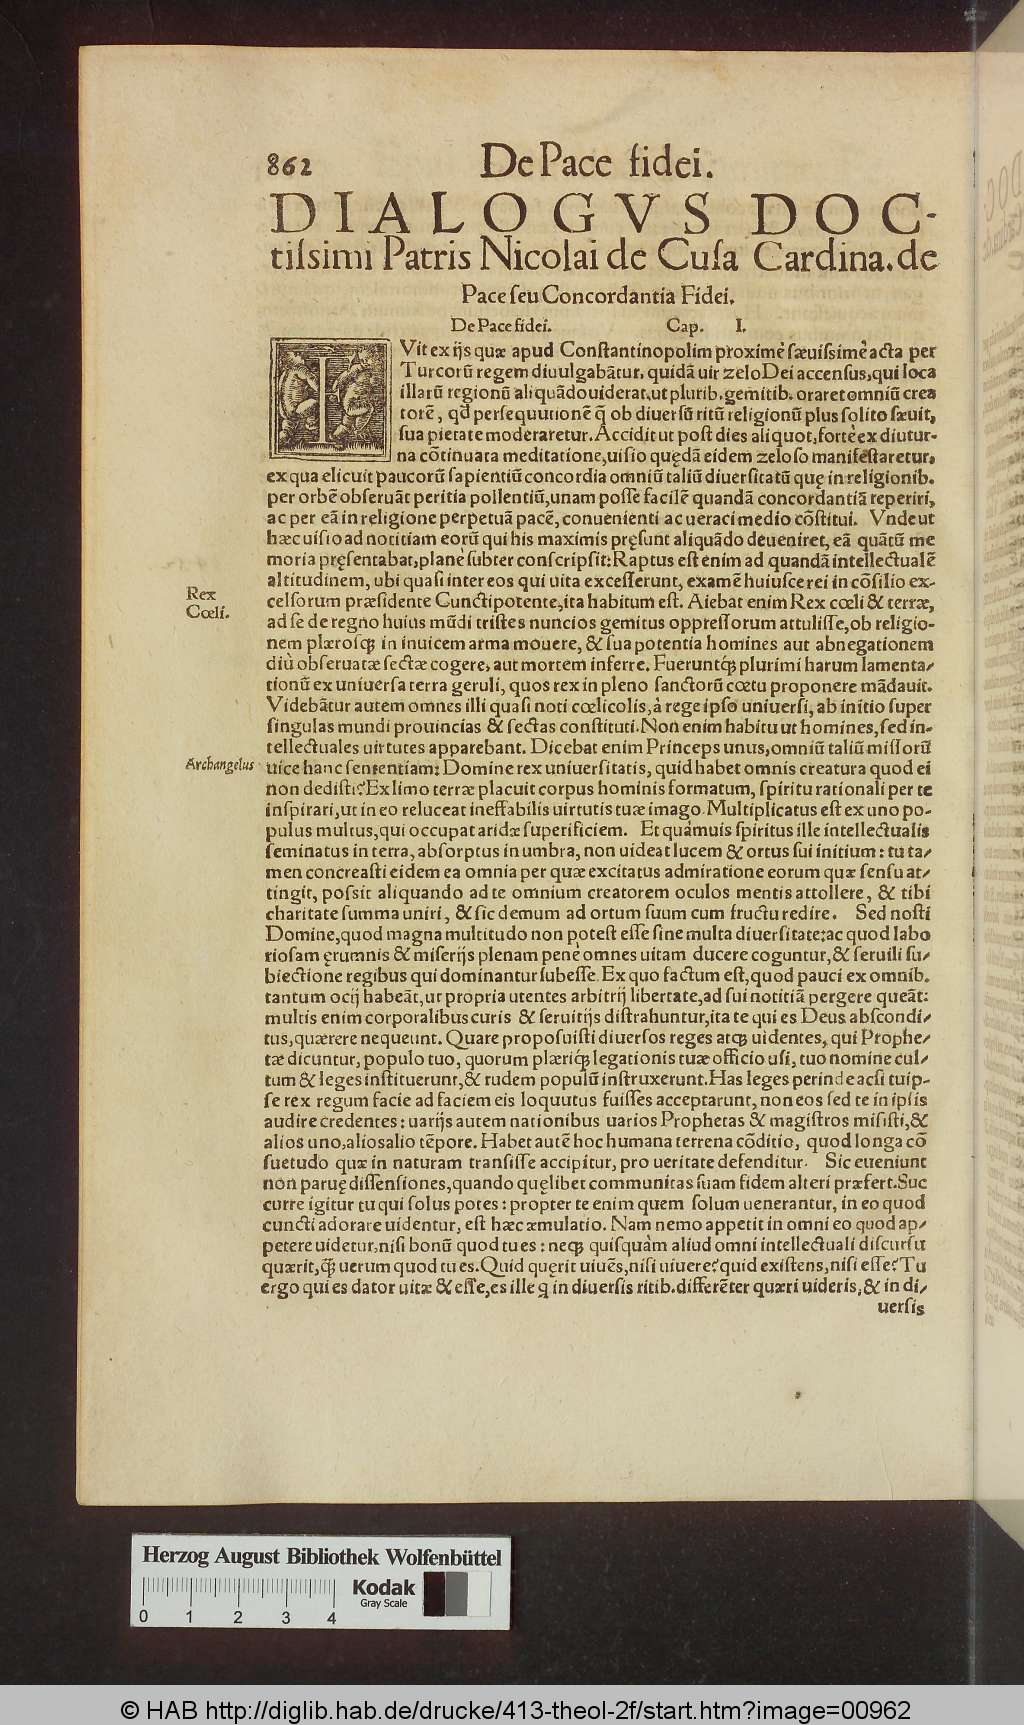 862 De Pace fidei.
DIALOGVS DOC-
tiſsimi Patris Nicolai de Cuſa Cardina. de
Pace ſeu Concordantia Fidei.
De Pace fidei. Cap. I.
FVit ex ijs quæ apud Conſtantinopolim proximè ſæuiſsimè acta per
Turcorũ regem diuulgabãtur, quidã uir zelo Dei accenſus, qui loca
illarũ regionũ aliquãdo uiderat, ut plurib. gemitib. oraret omniũ crea
torẽ, qd perſequutionẽ q̃ ob diuerſũ ritũ religionũ plus ſolito ſæuit,
ſua pietate moderaretur. Accidit ut poſt dies aliquot, fortè ex diutur-
na cõtinuata meditatione, uiſio quędã eidem zeloſo manifeſtaretur,
ex qua elicuit paucorũ ſapientiũ concordia omniũ taliũ diuerſitatũ quę in religionib.
per orbẽ obſeruãt peritia pollentiũ, unam poſſe facilẽ quandã concordantiã reperiri,
ac per eã in religione perpetuã pacẽ, conuenienti ac ueraci medio cõſtitui. Vnde ut
hæc uiſio ad notitiam eorũ qui his maximis pręſunt aliquãdo deueniret, eã quãtũ me
moria pręſentabat, plane ſubter conſcripſit: Raptus eſt enim ad quandã intellectualẽ
altitudinem, ubi quaſi inter eos qui uita exceſſerunt, examẽ huiuſce rei in cõſilio ex-
celſorum præſidente Cunctipotente, ita habitum eſt. Aiebat enim Rex cœli & terræ,
Rex
Cœli.
ad ſe de regno huius mũdi triſtes nuncios gemitus oppreſſorum attuliſſe, ob religio-
nem plæroſq; in inuicem arma mouere, & ſua potentia homines aut abnegationem
diù obſeruatæ ſectæ cogere, aut mortem inferre. Fueruntq; plurimi harum lamenta-
tionũ ex uniuerſa terra geruli, quos rex in pleno ſanctorũ cœtu proponere mãdauit.
Videbãtur autem omnes illi quaſi noti cœlicolis, à rege ipſo uniuerſi, ab initio ſuper
ſingulas mundi prouincias & ſectas conſtituti. Non enim habitu ut homines, ſed in-
tellectuales uirtutes apparebant. Dicebat enim Princeps unus, omniũ taliũ miſſorũ
Archangelus
uice hanc ſententiam: Domine rex uniuerſitatis, quid habet omnis creatura quod ei
non dediſti? Ex limo terræ placuit corpus hominis formatum, ſpiritu rationali per te
inſpirari, ut in eo reluceat ineffabilis uirtutis tuæ imago. Multiplicatus eſt ex uno po-
pulus multus, qui occupat aridæ ſuperificiem. Et quàmuis ſpiritus ille intellectualis
ſeminatus in terra, abſorptus in umbra, non uideat lucem & ortus ſui initium: tu ta-
men concreaſti eidem ea omnia per quæ excitatus admiratione eorum quæ ſenſu at-
tingit, poſsit aliquando ad te omnium creatorem oculos mentis attollere, & tibi
charitate ſumma uniri, & ſic demum ad ortum ſuum cum fructu redire. Sed noſti
Domine, quod magna multitudo non poteſt eſſe ſine multa diuerſitate: ac quod labo
rioſam ęrumnis & miſerijs plenam penè omnes uitam ducere coguntur, & ſeruili ſu-
biectione regibus qui dominantur ſubeſſe. Ex quo factum eſt, quod pauci ex omnib.
tantum ocij habeãt, ut propria utentes arbitrij libertate, ad ſui notitiã pergere queãt:
multis enim corporalibus curis & ſeruitijs diſtrahuntur, ita te qui es Deus abſcondi-
tus, quærere nequeunt. Quare propoſuiſti diuerſos reges atq; uidentes, qui Prophe-
tæ dicuntur, populo tuo, quorum plæriq; legationis tuæ officio uſi, tuo nomine cul-
tum & leges inſtituerunt, & rudem populũ inſtruxerunt. Has leges perinde acſi tu ip-
ſe rex regum facie ad faciem eis loquutus fuiſſes acceptarunt, non eos ſed te in ipſis
audire credentes: uarijs autem nationibus uarios Prophetas & magiſtros miſiſti, &
alios uno, alios alio tẽpore. Habet autẽ hoc humana terrena cõditio, quod longa cõ
ſuetudo quæ in naturam tranſiſſe accipitur, pro ueritate defenditur. Sic eueniunt
non paruę diſſenſiones, quando quęlibet communitas ſuam fidem alteri præfert. Suc
curre igitur tu qui ſolus potes: propter te enim quem ſolum uenerantur, in eo quod
cuncti adorare uidentur, eſt hæc æmulatio. Nam nemo appetit in omni eo quod ap-
petere uidetur, niſi bonũ quod tu es: neq; quiſquàm aliud omni intellectuali diſcurſu
quærit, q̃ uerum quod tu es. Quid quęrit uiuẽs, niſi uiuere? quid exiſtens, niſi eſſe? Tu
ergo qui es dator uitæ & eſſe, es ille q in diuerſis ritib. differẽter quæri uideris, & in di-
uerſis
Herzog August Bibliothek Wolfenbüttel
Kodak
Gray Scale
0 1 2 3 4
© HAB http://diglib.hab.de/drucke/413-theol-2f/start.htm?image=00962